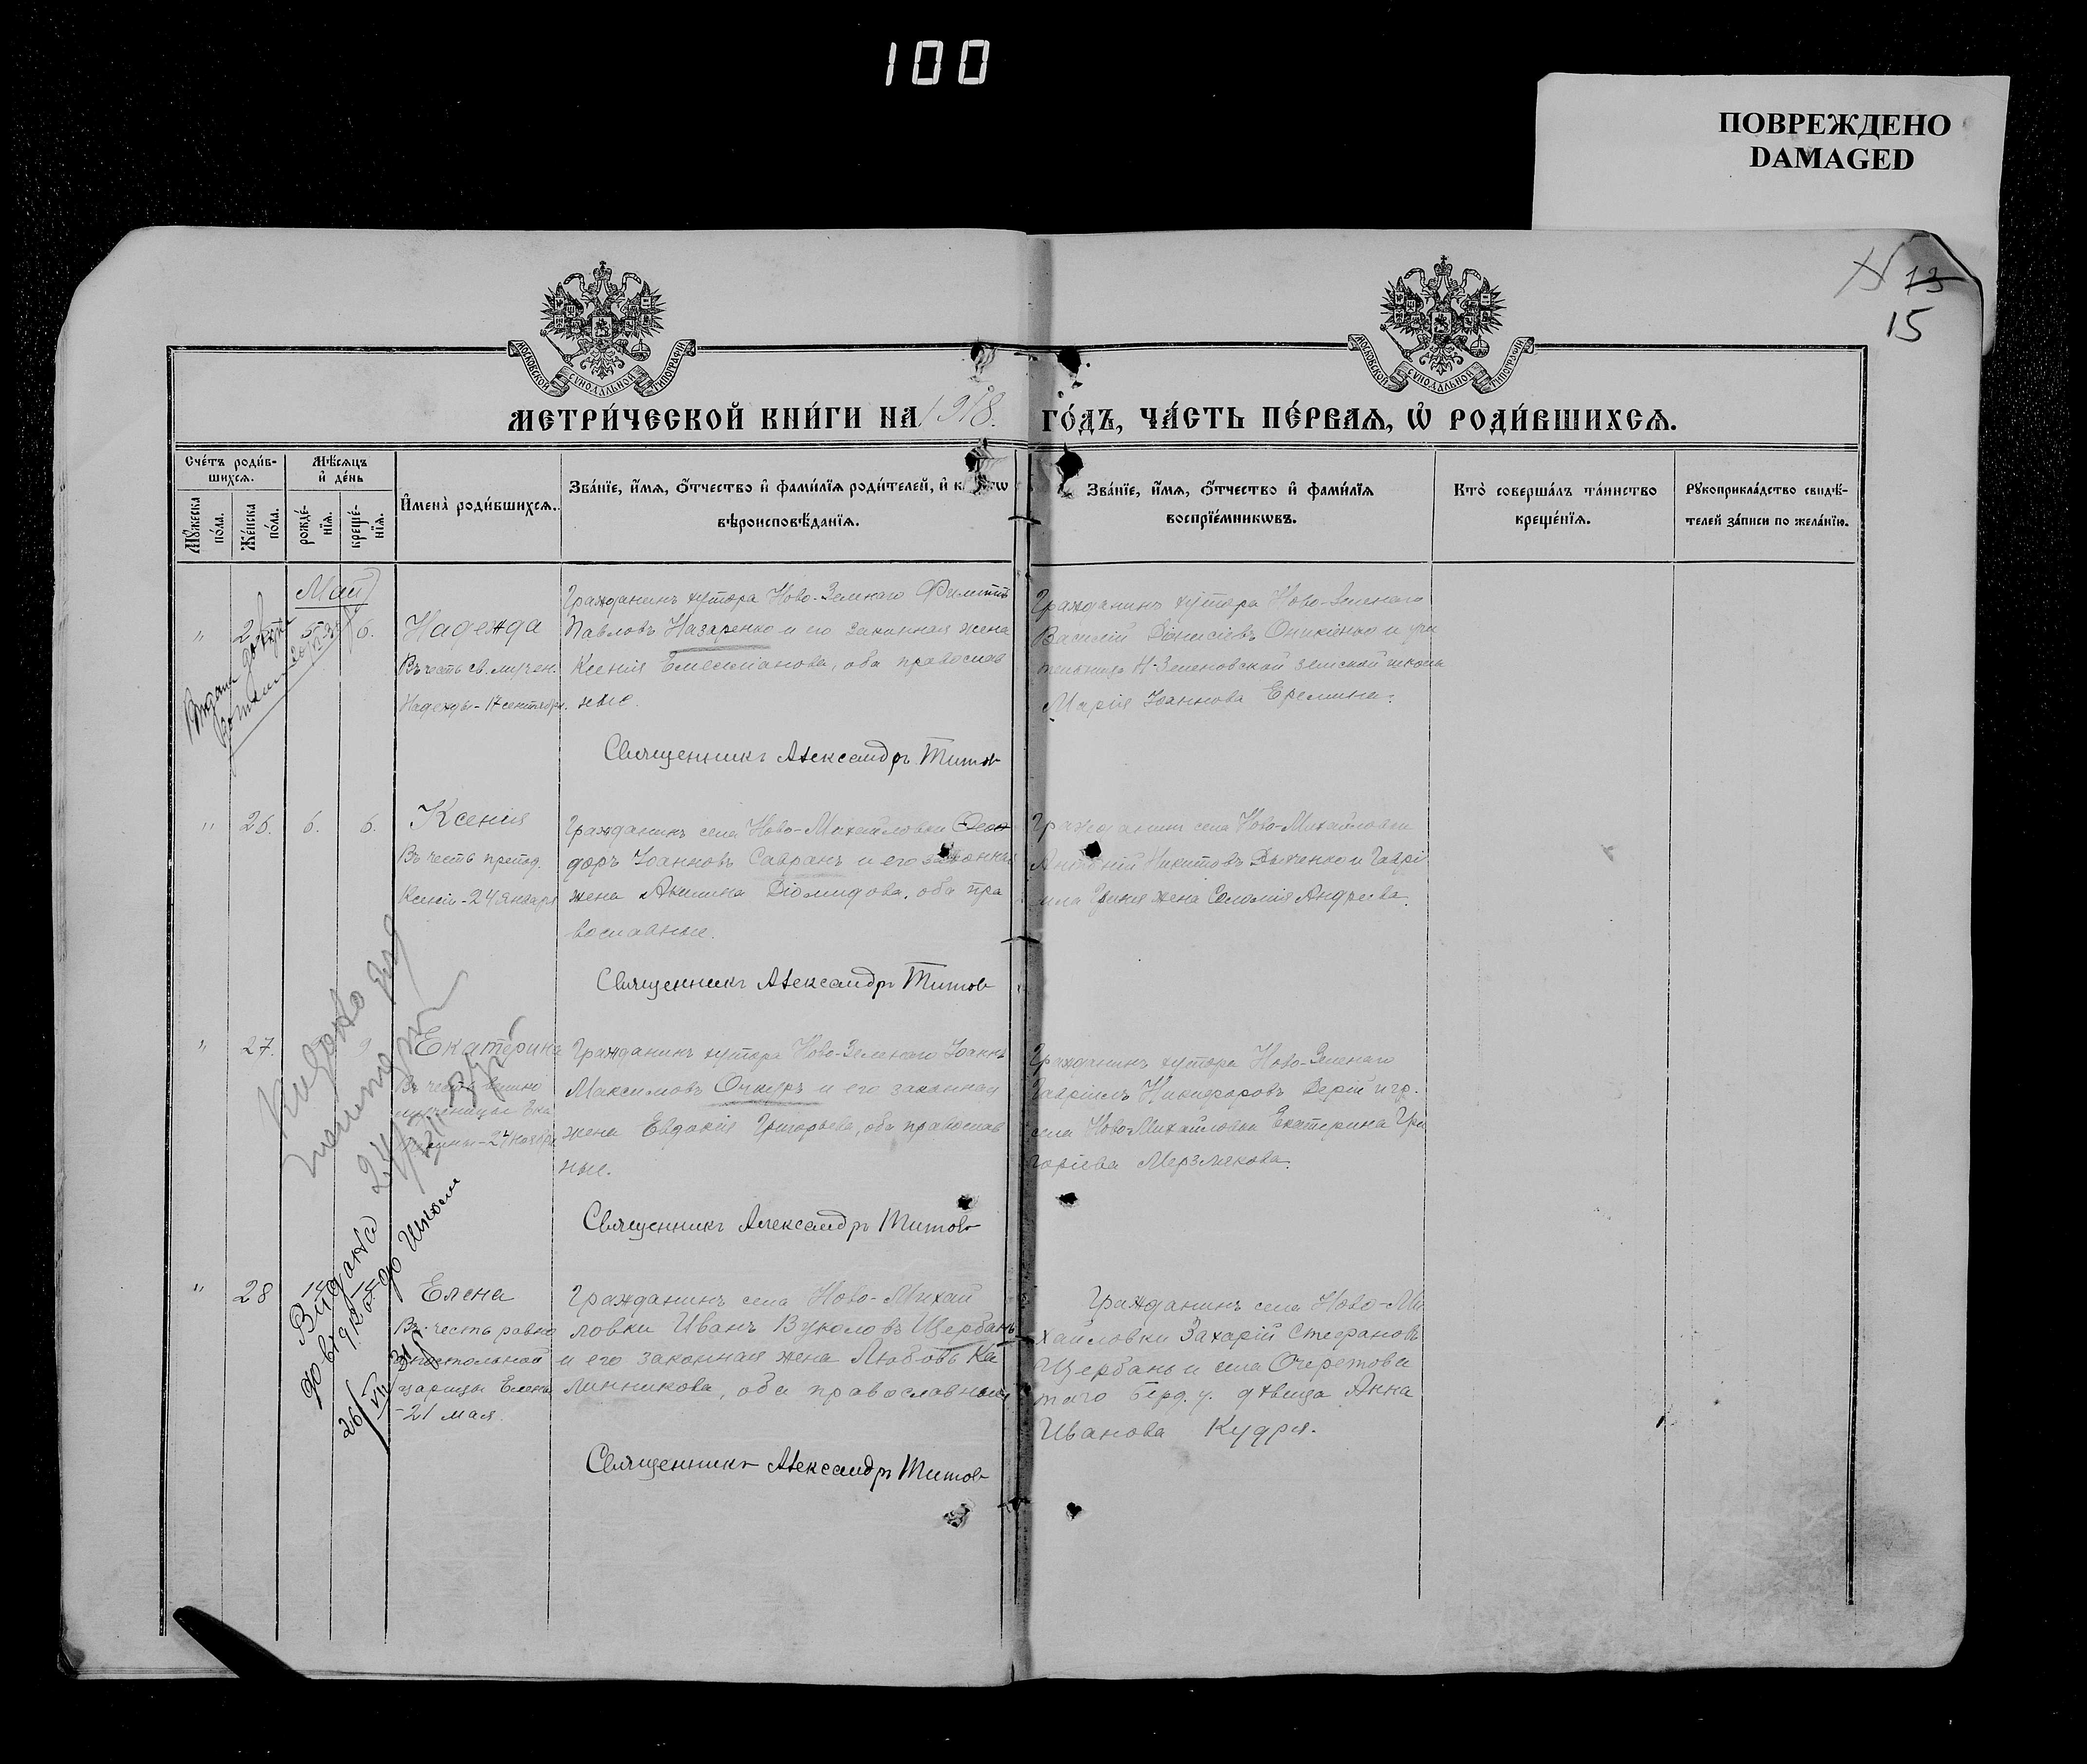 100
ПОВРЕЖДЕНО
DAMAGED
13
15
МОСКОВСКОЙ СѴНОДАЛЬНОЙ ТИПОГРАФІИ
МОСКОВСКОЙ СѴНОДАЛЬНОЙ ТИПОГРАФІИ
МЕТРИ́ЧЕСКОЙ КНИ́ГИ НА 1918. ГО́ДЪ, ЧА́СТЬ ПЕ́РВАЯ, Ѡ҆ РОДИ́ВШИХСЯ.
Сче́тъ роди́в-
шихся.
Мѣ́сяцъ
и҆ де́нь
Мꙋ́жеска
по́ла.
Же́нска
по́ла.
рожде́-
нїя.
креще́-
нїя.
И҆мена̀ роди́вшихся.
Зва́нїе, и҆́мя, ѻ҆́тчество и҆ фами́лїя роди́телей, и҆
вѣроисповѣ́данїя.
Зва́нїе, и҆́мя, ѻ҆́тчество и҆ фами́лїя
воспрїе́мникѡвъ.
Кто̀ соверша́лъ та́инство
креще́нїя.
Рꙋкоприкла́дство свидѣ́-
телей за́писи по жела́нїю.
Май
" 5 6.
Надежда
Въ честь св. мучен.
Надежды - 17 сентября.
Гражданинъ хутора Ново-Зеленаго Филиппъ
Павловъ Назаренко и его законная жена
Ксенія Емеліанова, оба православ
ные.
Священникъ Александръ Титовъ
Гражданинъ хутора Ново-Зеленаго
Василій Діонисіевъ Оникіенко и учи
тельница Н-Зеленовской земской школы
Марія Іоаннова Еремина.
" 26. 6. 6.
Ксенія
Въ честь препод.
Ксеніи - 24 января
Гражданинъ села Ново-Михайловки Ѳео
доръ Іоанновъ Савранъ и его законная
жена Акилина Діомидова, оба пра
вославные.
Священникъ Александръ Титовъ
Гражданинъ села Ново-Михайловки
Антоній Никитовъ Дяченко и Гаврі
ила жена Соломія Андреева.
" 27. 9
Екатерина
Въ честь велико
мученицы Ека
терины - 24 ноября
Гражданинъ хутора Ново-Зеленаго Іоаннъ
Максимовъ Очкуръ и его законная
жена Евдокія Григорьева, оба православ
ные.
Священникъ Александръ Титовъ
Гражданинъ хутора Ново-Зеленаго
Гавріилъ Никифоровъ Дерій и гр.
села Ново-Михайловки Екатерина Гри
горіева Мерзлякова.
" 28
Елена
Въ честь равно
апостольной
царицы Елены
- 21 мая.
Гражданинъ села Ново-Михай
ловки Иванъ Вуколовъ Щербань
и его законная жена Любовь Ка
линникова, оба православные
Священникъ Александръ Титовъ
Гражданинъ села Ново-Ми
хайловки Захарій Стефановъ
Щербань и села Очеретова
таго Берд. у. дѣвица Анна
Иванова Кудря.
Видано
24/VII 31р
Видана
довідка до школи
26/VII 31р